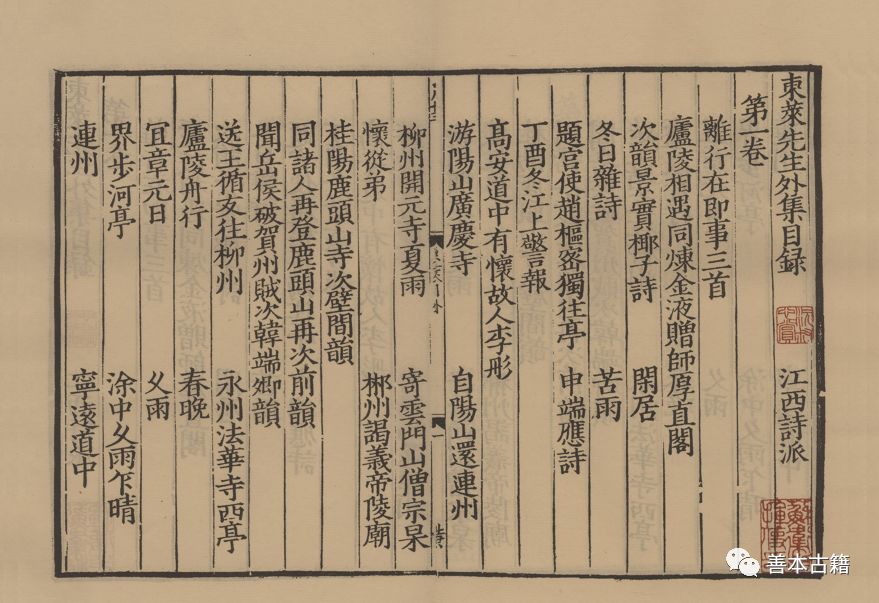 東萊先生外集目録 江西詩派
第一卷
離行在即事三首
廬陵相遇同煉金液贈師厚直閣
次韻景實椰子詩 閑居
冬日雜詩 苦雨
題宫使趙樞密獨往亭 申端應詩
丁酉冬江上警報
髙安道中有懷故人李彤
游陽山廣慶寺 自陽山還連州
柳州開元寺夏雨 寄雲門山僧宗杲
懷從弟 郴州謁義帝陵廟
桂陽鹿頭山寺次壁間韻
同諸人再登鹿頭山再次前韻
聞岳侯破賀州賊次韓端卿韻
送王循友往柳州 永州法華寺西亭
廬陵舟行 春晚
冝章元日 乆雨
界步河亭 涂中乆雨乍晴
連州 寧遠道中
善本古籍